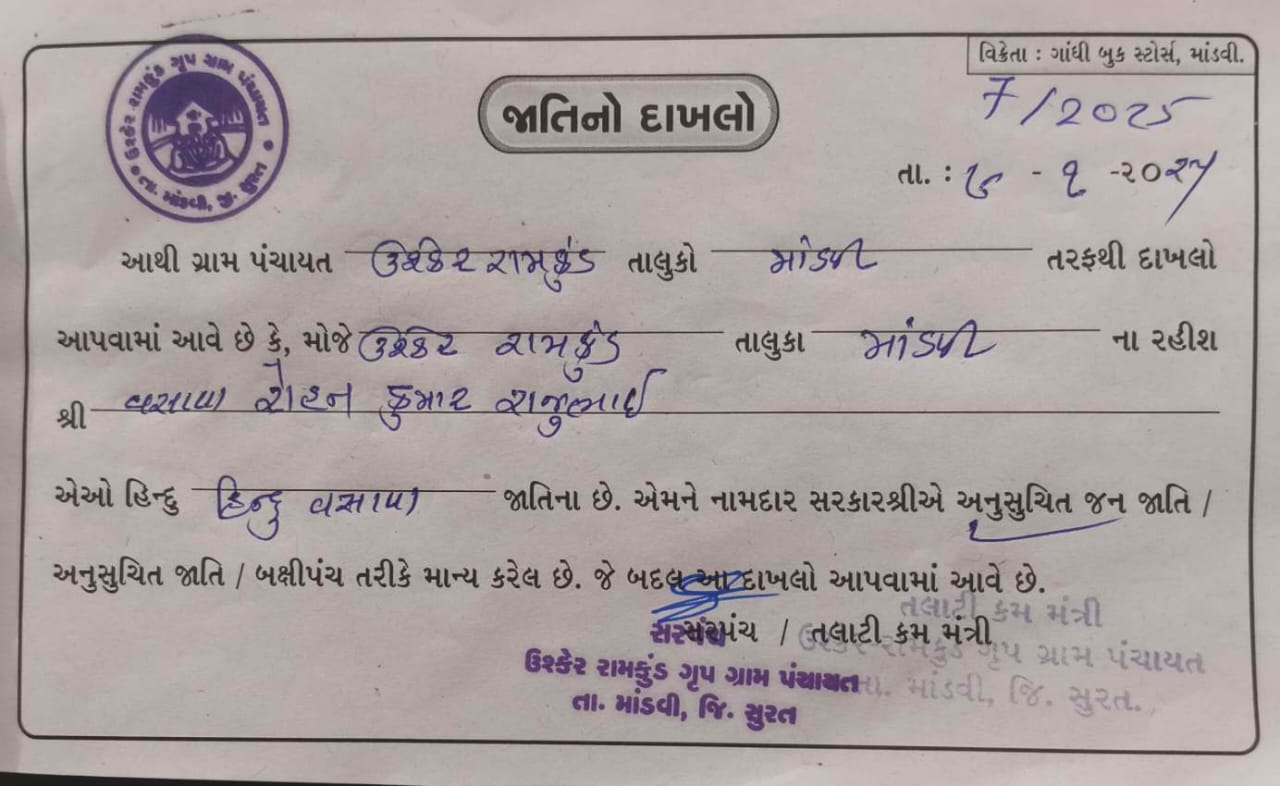 ઉશ્કેર રામકુંડ ગૃપ ગ્રામ પંચાયત
તા. માંડવી, જી. સુરત
વિક્રેતા : ગાંધી બુક સ્ટોર્સ, માંડવી.
જાતિનો દાખલો
7/2025
તા. : - ૧ -૨૦૨૫
આથી ગ્રામ પંચાયત ઉશ્કેર રામકુંડ તાલુકો માંડવી તરફથી દાખલો
આપવામાં આવે છે કે, મોજે ઉશ્કેર રામકુંડ તાલુકા માંડવી ના રહીશ
શ્રી વસાવા રોહન કુમાર રાજુભાઈ
એઓ હિન્દુ હિન્દુ વસાવા જાતિના છે. એમને નામદાર સરકારશ્રીએ અનુસુચિત જન જાતિ /
અનુસુચિત જાતિ / બક્ષીપંચ તરીકે માન્ય કરેલ છે. જે બદલ આ દાખલો આપવામાં આવે છે.
સરપંચ / તલાટી કમ મંત્રી
સરપંચ
ઉશ્કેર રામકુંડ ગૃપ ગ્રામ પંચાયત
તા. માંડવી, જિ. સુરત
તલાટી કમ મંત્રી
ઉશ્કેર રામકુંડ ગૃપ ગ્રામ પંચાયત
તા. માંડવી, જિ. સુરત.